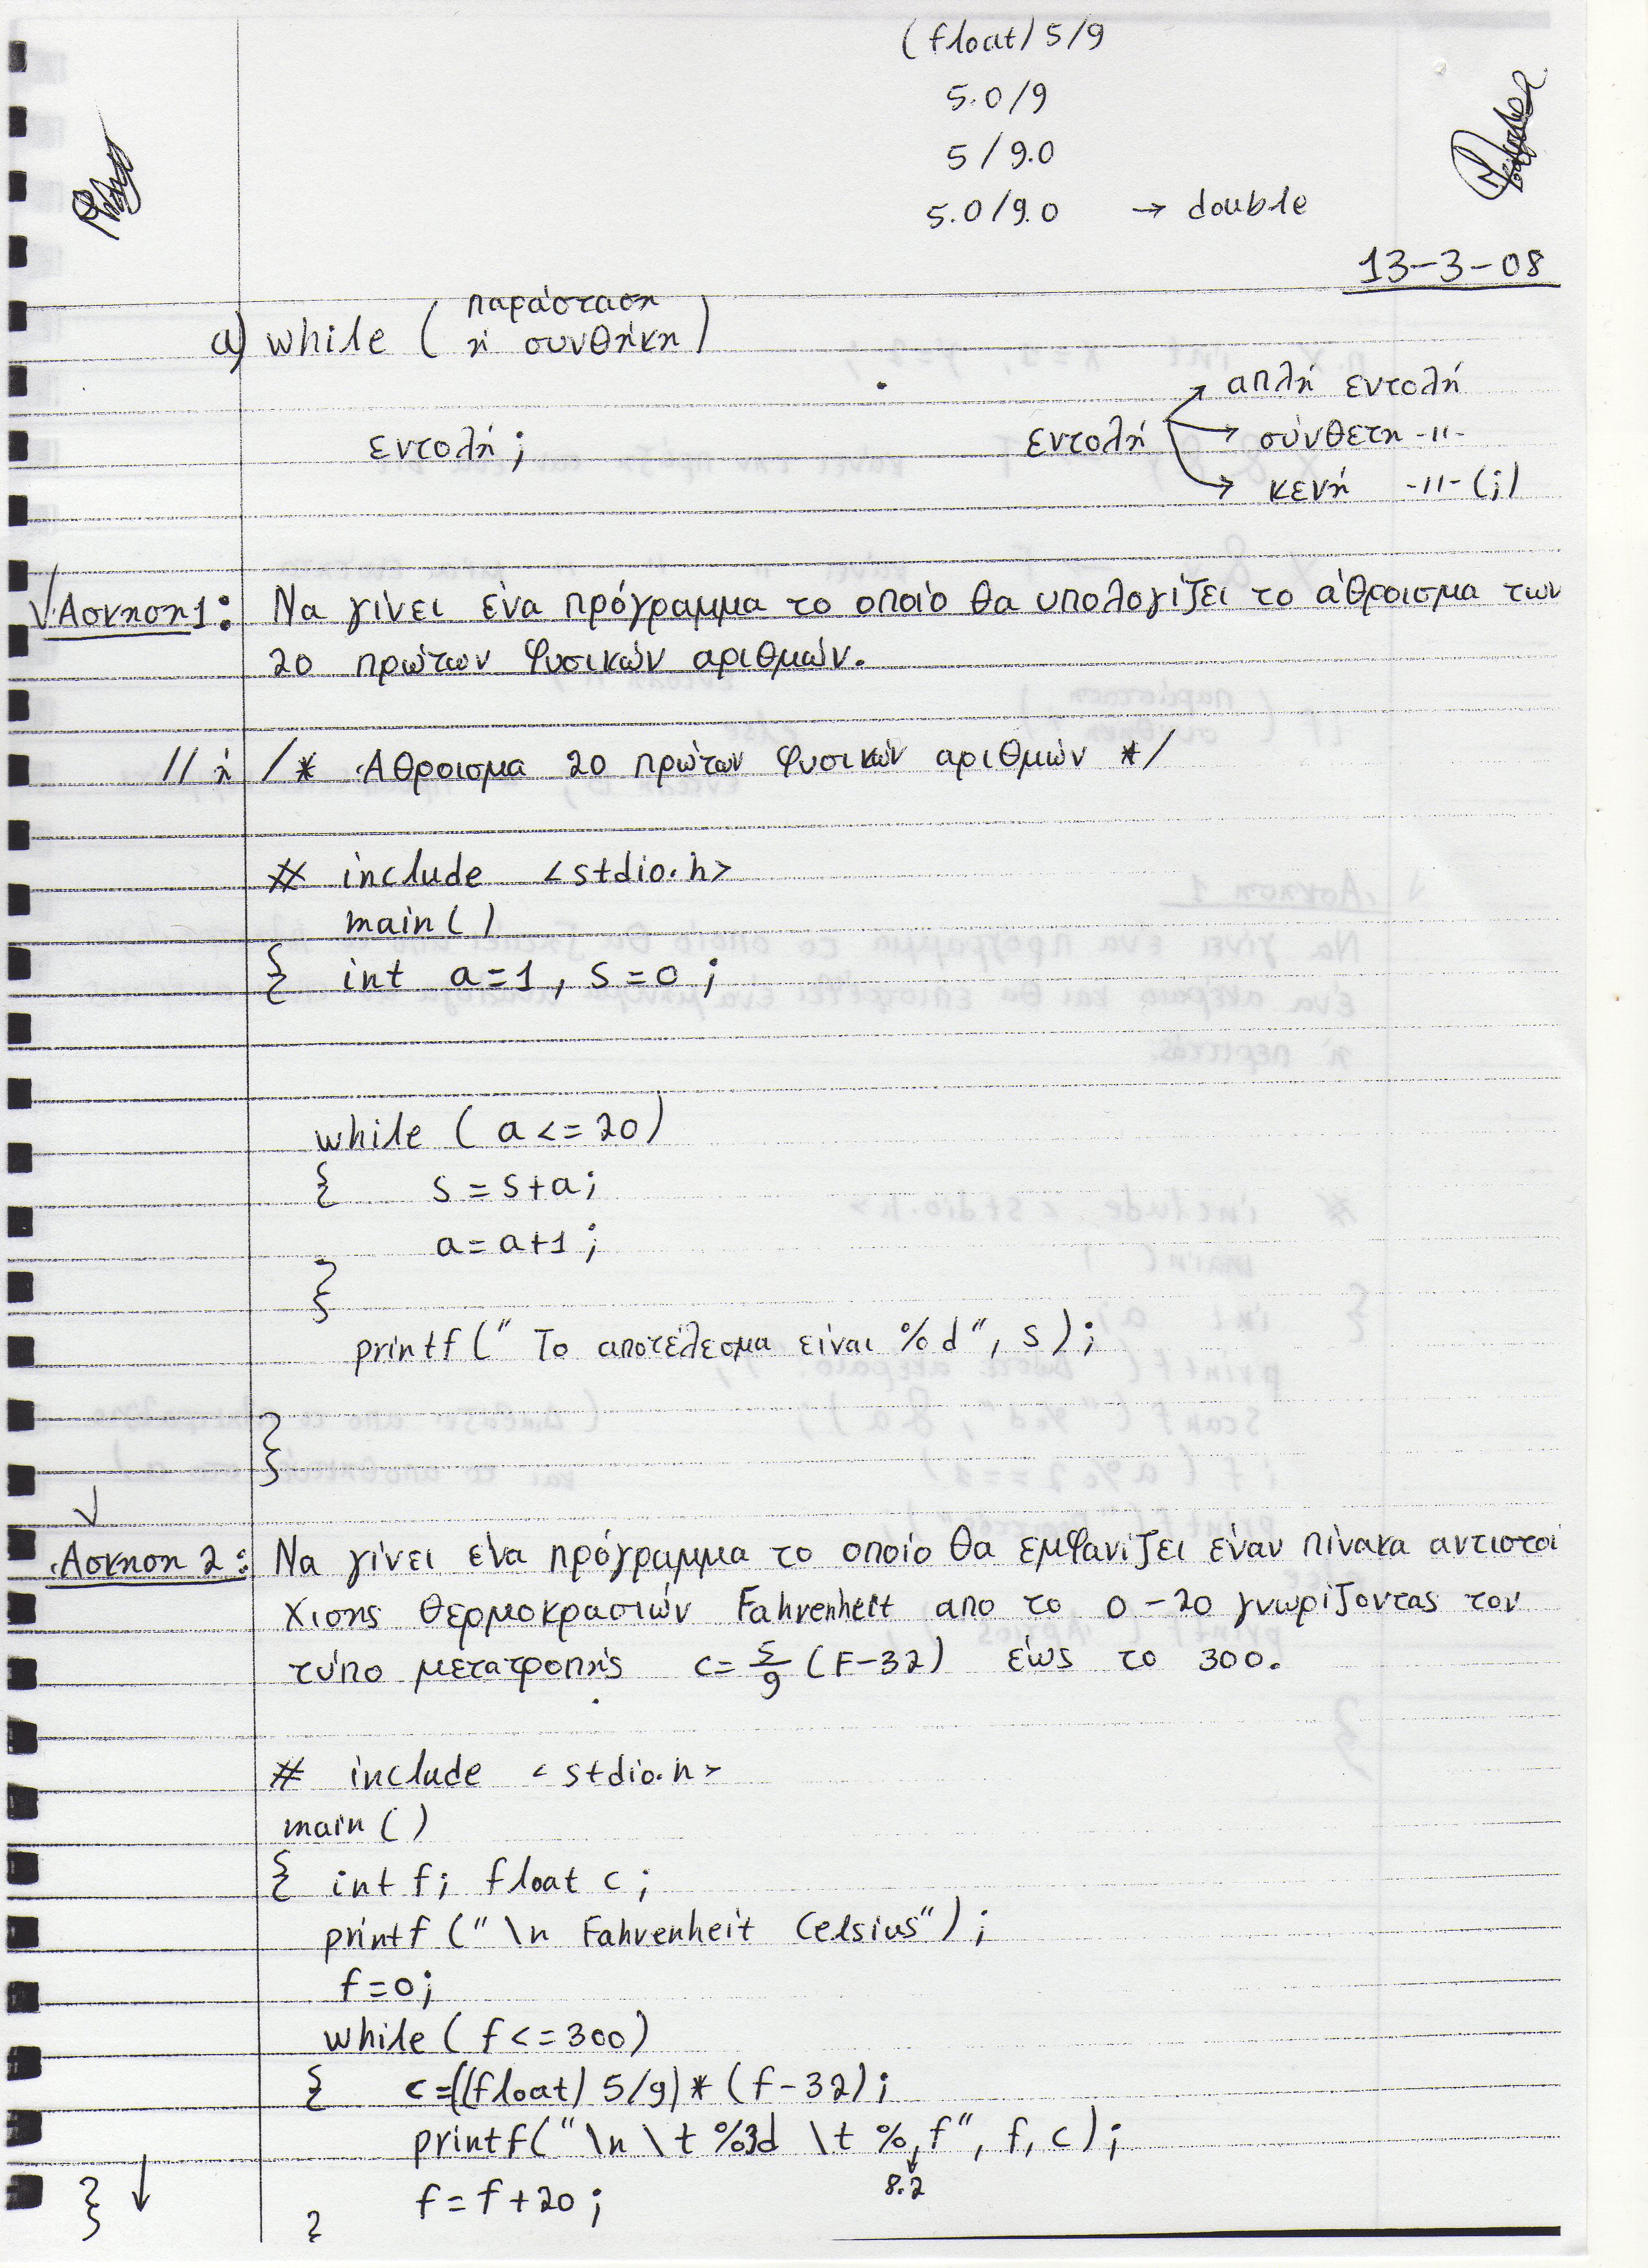 (float) 5/9
5.0/9
5/9.0
5.0/9.0 → double
13-3-08
α) while ( παράσταση
ή συνθήκη )
→ απλή εντολή
εντολή; εντολή → σύνθετη -||-
→ κενή -||- (;)
√Άσκηση 1: Να γίνει ένα πρόγραμμα το οποίο θα υπολογίζει το άθροισμα των
20 πρώτων φυσικών αριθμών.
// ή /* Άθροισμα 20 πρώτων φυσικών αριθμών */
# include <stdio.h>
main()
{ int a=1, s=0;
while (a<=20)
{ s=s+a;
a=a+1;
}
printf(" Το αποτέλεσμα είναι %d", s);
}
Άσκηση 2: Να γίνει ένα πρόγραμμα το οποίο θα εμφανίζει έναν πίνακα αντιστοί
χισης θερμοκρασιών Fahrenheit απο το 0-20 γνωρίζοντας τον
τύπο μετατροπής c=5/9 (F-32) έως το 300.
# include <stdio.h>
main()
{ int f; float c;
printf ("\n Fahrenheit Celsius");
f=0;
while (f<=300)
{ c=((float) 5/9)*(f-32);
printf("\n \t %3d \t %f", f, c);
8.2
f=f+20;
}
}